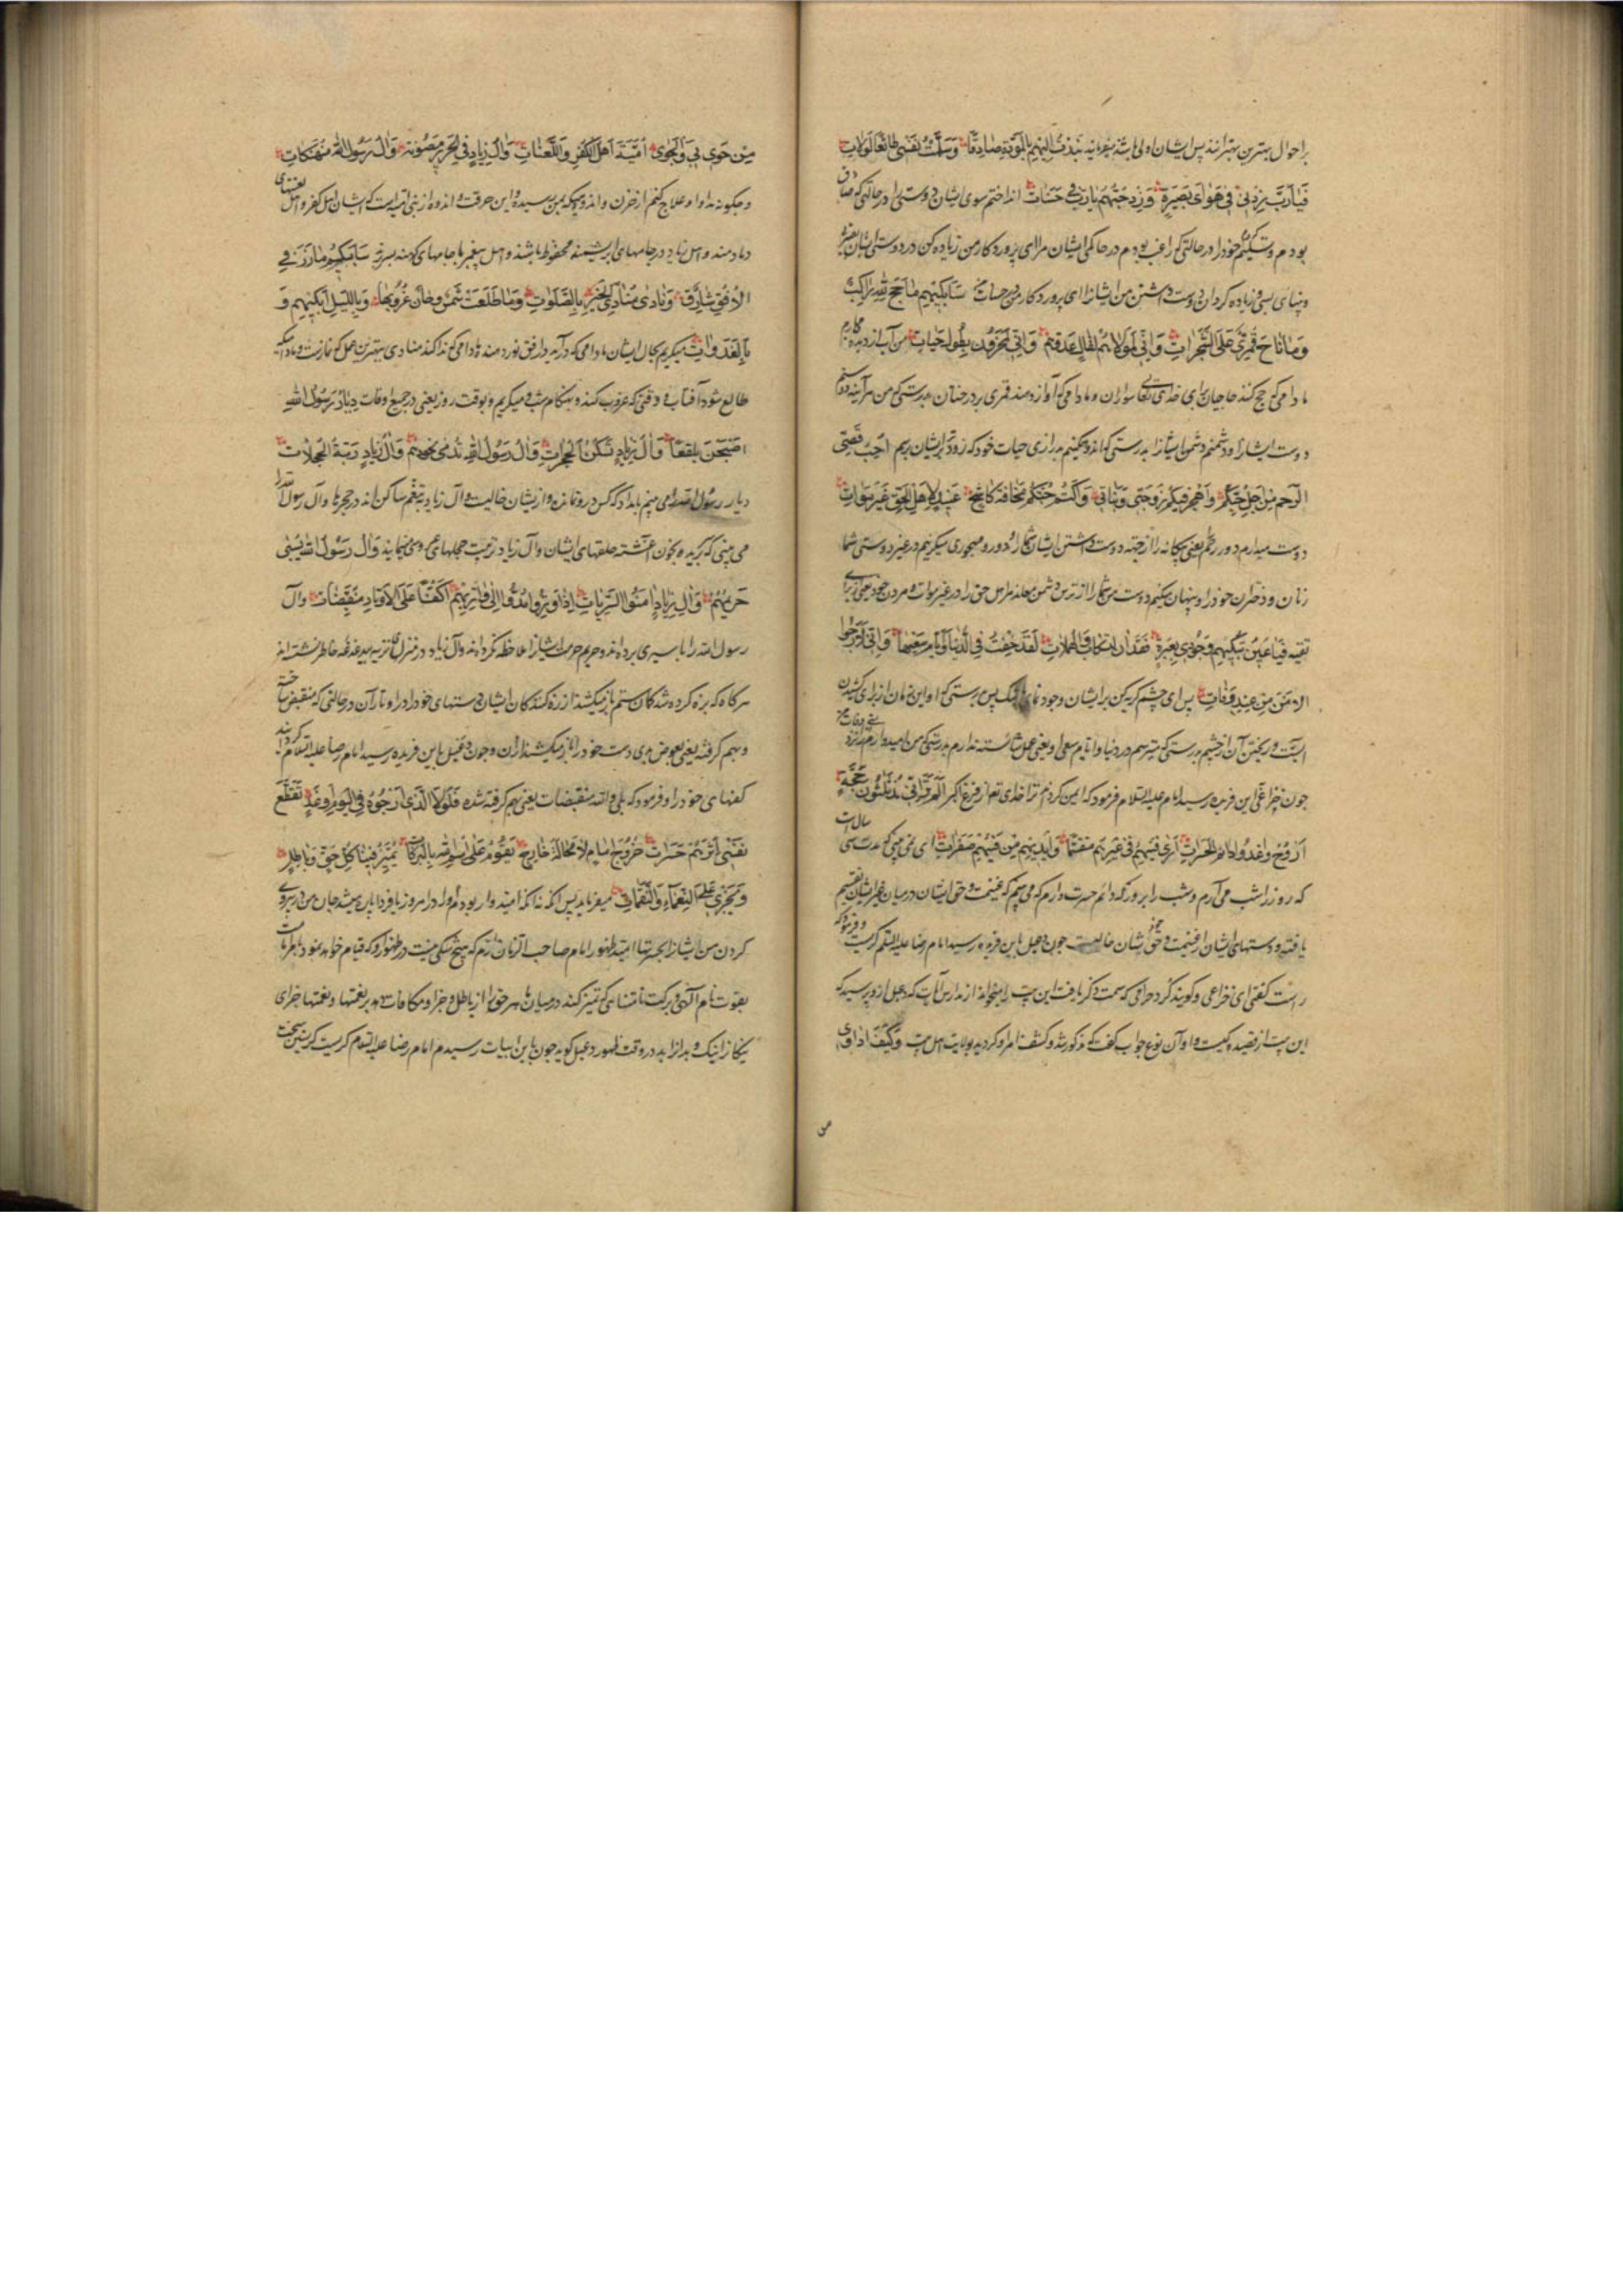 براحوال بهترین بهترانند پس ایشان اولی باشند میفرماید نبذت الیهم بالمودة صادقا وسلمت نفسی طائعا لولات
فیارب زدنی فی هوای بصیرة وزد حبهم یارب فی حسنات انداختم سوی ایشان دوستی را در حالتی که صادق
بودم و تسلیم خود را در حالتی که راغب بودم در حاکمی ایشان مرا ای پروردکار من زیاده کن در دوستی ایشان
و بینهای بسی و زیاده کردان دوست داشتن من ایشانرا ای پروردکار من در حسنات من سابکیهم ما حج لله راکب
وما ناح قمری علی الشجرات وانی لمولاهم وقال عدوهم وانی لمحزون بطول حیات من آب از دیده
مادامی که حج کنند حاجیان برای خدای تعالی سواران و مادامی که آواز دهد قمری بر درختان بدرستی که من هرآینه
دوست ایشانرا و دشمنم دشمن ایشانرا بدرستی که اندوهکینم بدرازی حیات خود که زودتر بایشان برسم احب قصی
الرحم من اجل حبکم واهجر فیکم زوجتی وبناتی واکتم حبکم مخافة کاشح عنید لاهل الحق غیر موات
دوست میدارم دور رحم یعنی بیکانه را از جهة دوست داشتن ایشان شما را و دور و مهجوری میکزینم در غیر دوستی شما
زنان و دختران خود را و پنهان میکنم دوستی شما را از ترس دشمن معاند مر اهل حق را و غیر موات و مردن خود یعنی برای
تقیه فیا عین بکیهم وجودی بعبرة فقد آن للتسکاب والهملات لقد خفت فی الدنیا وایام سعیها وانی لارجوا
الامن من عند وفات پس ای چشم کریه کن بر ایشان وجود نمای باشک پس بدرستی که این زمان از برای کشیدن
است و ریختن آن از چشم بدرستی که میترسم در دنیا و ایام سعی او یعنی عمل شایسته ندارم بدرستی که من امیدوارم از نزد
چون خزاعی این فریده رسید امام علیه السلام فرمود که ایمن کرداند ترا خدای تعالی از فزع اکبر الم تر انی مذ ثلثون حجة
اروح واغدو دائم الحسرات اری فیئهم فی غیرهم متقسما وایدیهم من فیئهم صفرات ای نمی بینی که مدت سی سال است
که روز را شب می آرم و شب را بروز که دائم حسرت دارم که می بینم که غنیمت و حق ایشان در میان غیر ایشان تقسیم
یافته و دستهای ایشان از غنیمت و حق ایشان خالیست چون دعبل باین فریده رسید امام رضا علیه السلم کریست و فرمود که
راست کفتی ای خزاعی و کویند کرد حرافی که سمت ذکر یافت این بیت را میخواند از مدارس آیات که دعبل ازو پرسید که
این بیت از قصیده کیست و او آن نوع جواب کفت که مذکور شد و کشف امر او کردید بولایت اهل بیت وکیف اداوی
من جوی بی والجوی امیة اهل الکفر واللعنات وآل زیاد فی الحریر مصونة وآل رسول الله منهتکات
و چکونه مداوا و علاج کنم از حزن و اندوهی که بمن رسیده و این حرقت و اندوه از بنی امیه است که ایشان اهل کفر و اهل لعنتهای
دمادمند و اهل زیاد در جامهای ابریشمینه محفوظ باشند و اهل پیغمبر با جامهای کهنه بسر برند سابکیهم ما ذر فی
الافق شارق ونادی منادی الخیر بالصلوات وما طلعت شمس وحان غروبها وباللیل ابکیهم و
بالغدوات میکریم بحال ایشان مادامی که درآید در افق نور دهنده و مادامی که ندا کند منادی بهترین عمل که نمازست و مادامیکه
طالع شود آفتاب و وقتی که غروب کند و بهنکام شب میکریم و بوقت روز یعنی در جمیع اوقات دیار رسول الله
اصبحن بلقعا وآل زیاد تسکن الحجرات وآل رسول الله تدمی نحورهم وآل زیاد ربة الحجلات
دیار رسول الله را می بینم بامداد که کس درو نمانده و از ایشان خالیست و آل زیاد بتنعم ساکن اند در حجرها و آل رسول الله را
می بینی که بریده بخون آغشته حلقهای ایشان و آل زیاد تربیت حجلهای عروسی میخایند وآل رسول الله یسبی
حریمهم وآل زیاد امنوا السربات اذا وتروا مدوا الی واتریهم اکفا عن الاوتار منقبضات وآل
رسول الله را باسیری برده اند و حریم حرمت ایشانرا ملاحظه نکرده اند و آل زیاد در منزل بیدغدغه خاطر نشسته اند
هرکاه که بزه کرده شد کمان ستم باز میکشند از زه کنندکان ایشان دستهای خود را در اوتار آن در حالتی که منقبض ساخته
و بهم کرفته یعنی بعوض بدی دست خود را باز میکشند از ان و چون دعبل باین فریده رسید امام رضا علیه السلام
کفهای خود را و فرمود که بلی والله منقبضات یعنی بهم کرفته شده فلولا الذی ارجوه فی الیوم او غد تقطع
نفسی اثرهم حسرات خروج امام لا محالة خارج یقوم علی اسم الله بالبرکات یمیز فینا کل حق وباطل
ویجزی علی النعماء والنقمات میفرماید پس اگر نه آنکه امیدوار بودم او را در امروز یا فردا پاره میشد جان من در پیروی
کردن من ایشانرا بحسرتها امید ظهور امام صاحب الزمان دارم که هیچ شکی نیست در ظهور او که قیام خواهد نمود بامر امامت
بقوت نام الهی و برکت نامتناهی که تمیز کند در میان ما هر حق را از باطل و جزا و مکافات دهد بر نعمتها و نقمتها جزای
نیکانرا نیک و بدانرا بد در وقت ظهور دعبل کوید چون باین ابیات رسیدم امام رضا علیه السلام کریست کریستن سخت